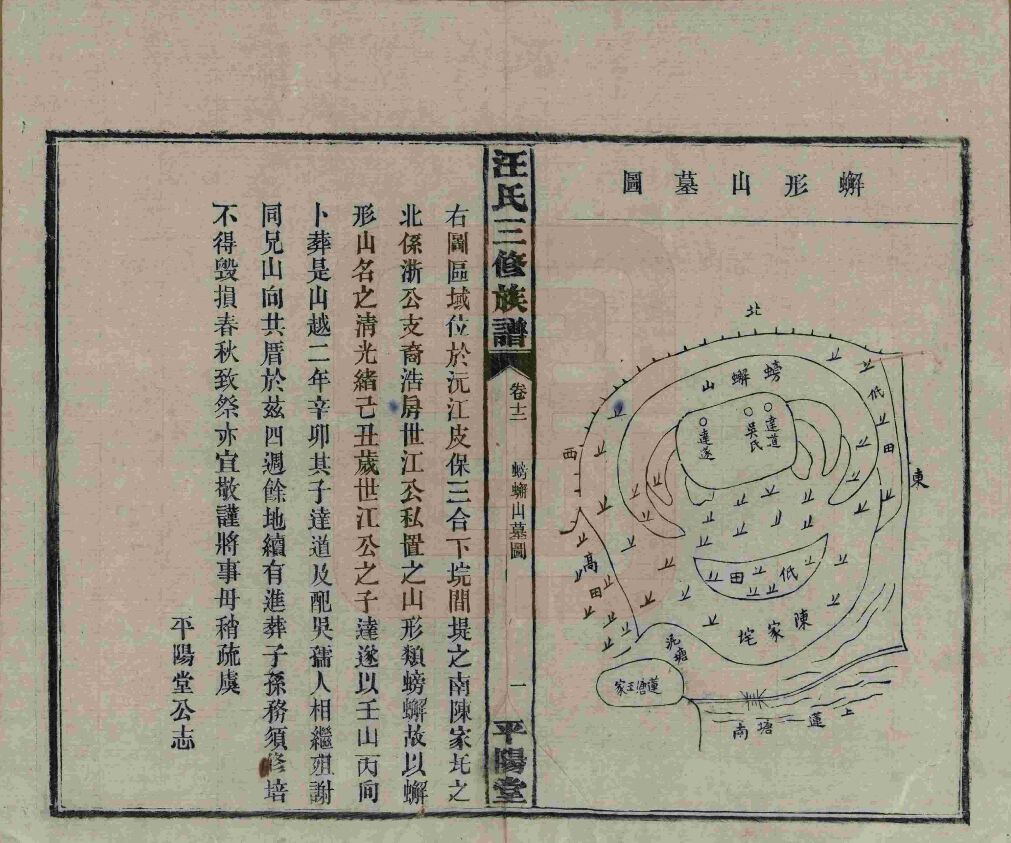 蠏形山墓圖
北
螃蠏山
達道
吳氏
達遂
西
東
低田
高田
低田
陳家坨
蓮塘王家
上蓮塘
南
汪氏三修族譜
卷十二
螃蠏山墓圖
一
平陽堂
右圖區域位於沅江皮保三合下垸間堤之南陳家坨之
北係浙公支裔浩房世江公私置之山形類螃蠏故以蠏
形山名之清光緒己丑歲世江公之子達遂以壬山丙向
卜葬是山越二年辛卯其子達道及配吳孺人相繼殂謝
同兄山向共厝於茲四週餘地續有進葬子孫務須修培
不得毀損春秋致祭亦宜敬謹將事毋稍疏虞
平陽堂公志